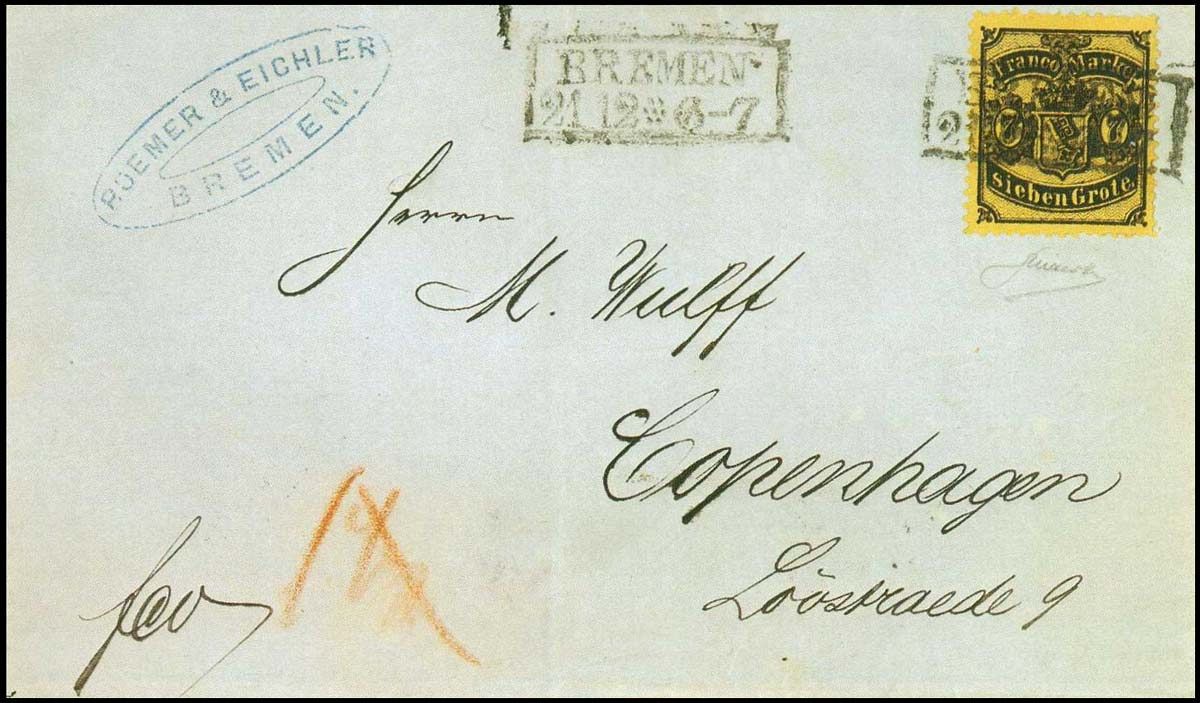 ROEMER & EICHLER
BREMEN.
BREMEN
21 12 6-7
2
Franco Marke
7 7
sieben Grote.
Herrn
M. Wulff
Copenhagen
Lövstraede 9